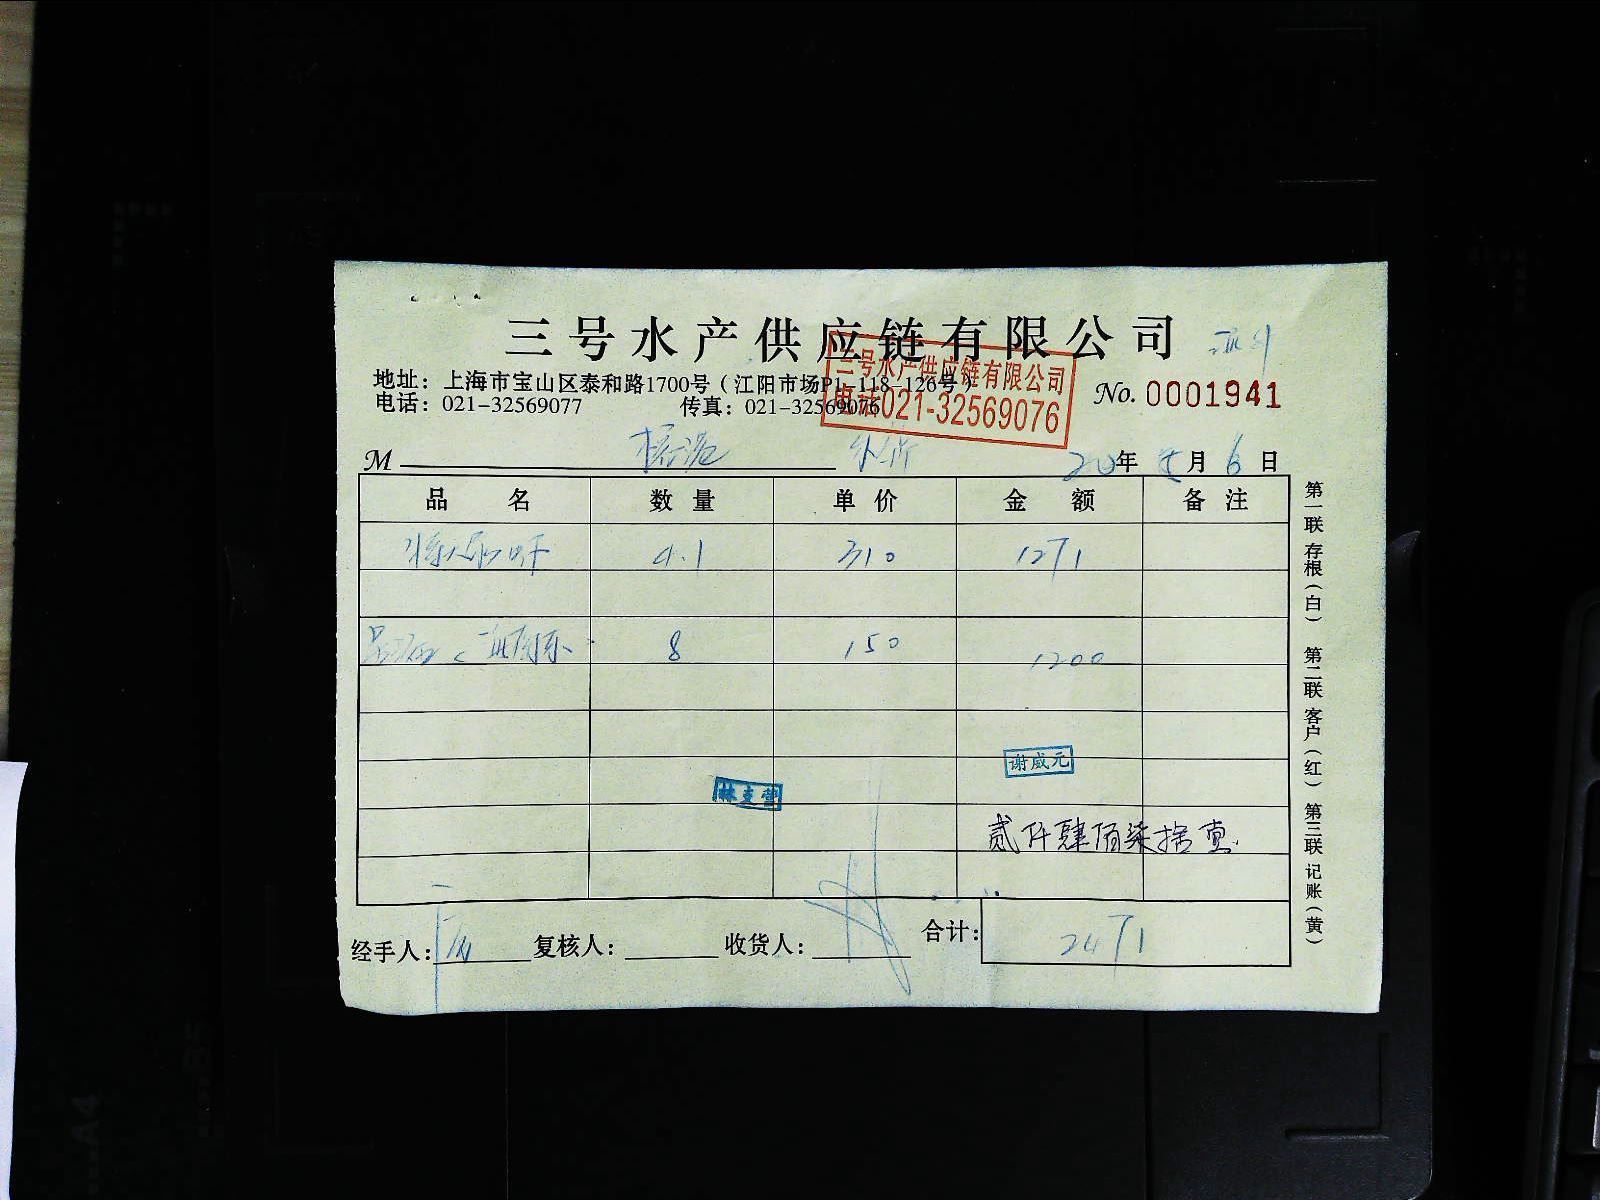 三号水产供应链有限公司
地址：上海市宝山区泰和路1700号（江阳市场P1-118-126号）
电话：021-32569077 传真：021-32569076
三号水产供应链有限公司
电话021-32569076
No. 0001941
M 20年 月 6 日
品名 数量 单价 金额 备注
4.1 310 1271
8 150 1200
谢威元
林支营
贰仟肆佰柒拾壹
经手人： 复核人： 收货人： 合计： 2471
第一联 存根（白） 第二联 客户（红） 第三联 记账（黄）